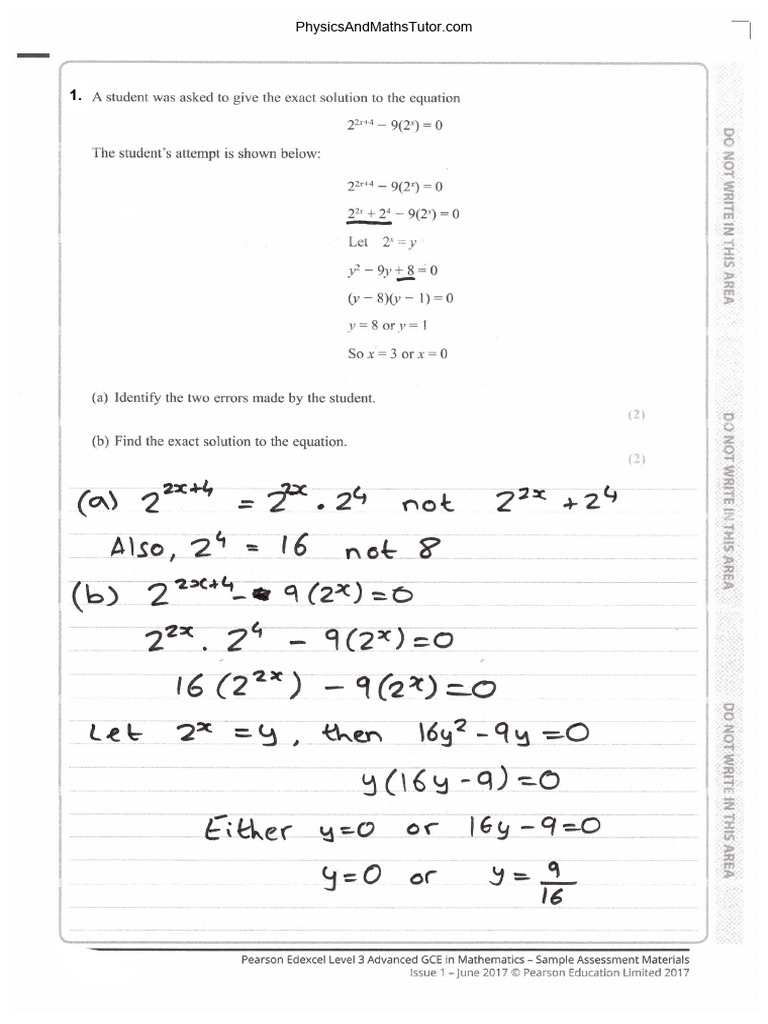 PhysicsAndMathsTutor.com
1. A student was asked to give the exact solution to the equation
2²ˣ⁺⁴ – 9(2ˣ) = 0
The student's attempt is shown below:
2²ˣ⁺⁴ – 9(2ˣ) = 0
2²ˣ + 2⁴ – 9(2ˣ) = 0
Let 2ˣ = y
y² – 9y + 8 = 0
(y – 8)(y – 1) = 0
y = 8 or y = 1
So x = 3 or x = 0
(a) Identify the two errors made by the student.
(2)
(b) Find the exact solution to the equation.
(2)
(a) 2²ˣ⁺⁴ = 2²ˣ . 2⁴ not 2²ˣ + 2⁴
Also, 2⁴ = 16 not 8
(b) 2²ˣ⁺⁴ - 9(2ˣ) = 0
2²ˣ . 2⁴ – 9(2ˣ) = 0
16(2²ˣ) – 9(2ˣ) = 0
Let 2ˣ = y, then 16y² - 9y = 0
y(16y - 9) = 0
Either y=0 or 16y - 9 = 0
y=0 or y = 9/16
DO NOT WRITE IN THIS AREA
DO NOT WRITE IN THIS AREA
DO NOT WRITE IN THIS AREA
Pearson Edexcel Level 3 Advanced GCE in Mathematics – Sample Assessment Materials
Issue 1 – June 2017 © Pearson Education Limited 2017